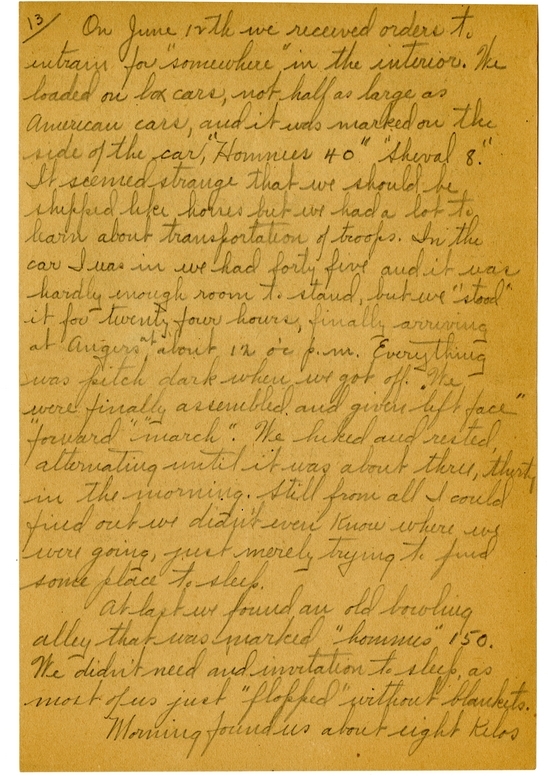 13/ On June 12th we received orders to
entrain for "somewhere" in the interior. We
loaded on box cars, not half as large as
American cars, and it was marked on the
side of the car, "Hommies 40" "Sheval 8."
It seemed strange that we should be
shipped like horses but we had a lot to
learn about transportation of troops. In the
car I was in we had forty five and it was
hardly enough room to stand, but we "stood"
it for twenty four hours, finally arriving
at Angers about 12 o'c p.m. Everything
was pitch dark when we got off. We
were finally assembled and given left face"
"forward" "march". We hiked and rested
alternating until it was about three, thirty
in the morning. Still from all I could
find out we didn't even know where we
were going, just merely trying to find
some place to sleep.
At last we found an old bowling
alley that was marked "hommies" 150.
We didn't need and invitation to sleep, as
most of us just "flopped" without blankets.
Morning found us about eight Kilos